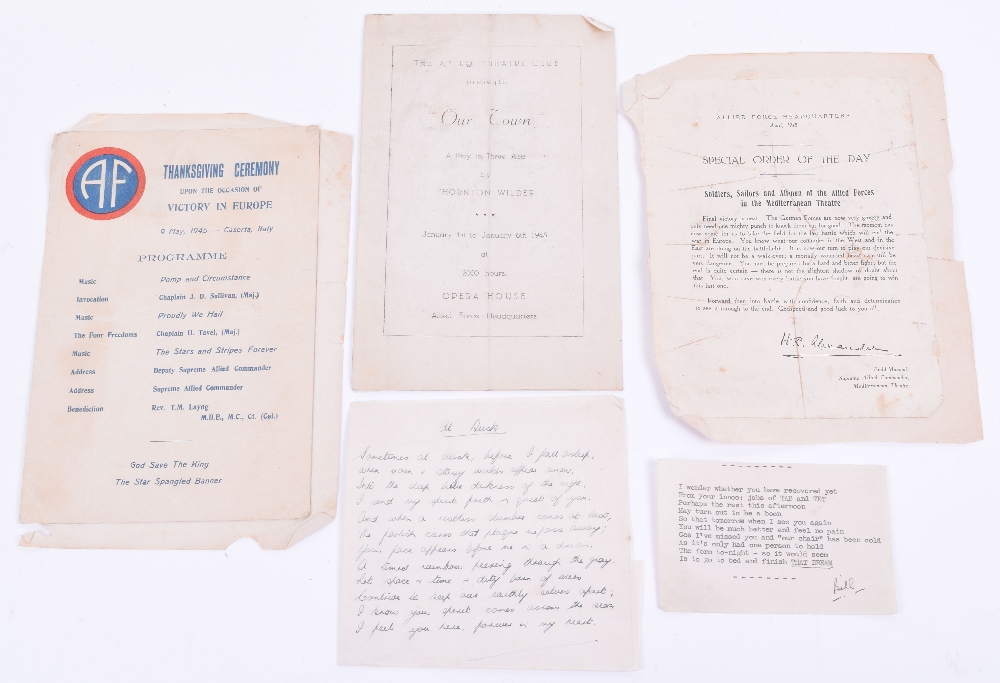 AF
THANKSGIVING CEREMONY
UPON THE OCCASION OF
VICTORY IN EUROPE
9 May, 1945 - Caserta, Italy
PROGRAMME
Music Pomp and Circumstance
Invocation Chaplain J. D. Sullivan, (Maj.)
Music Proudly We Hail
The Four Freedoms Chaplain H. Tavel, (Maj.)
Music The Stars and Stripes Forever
Address Deputy Supreme Allied Commander
Address Supreme Allied Commander
Benediction Rev. T.M. Layng
M.B.E., M.C., Cf. (Col.)
God Save The King
The Star Spangled Banner
THE AFHQ THEATRE CLUB
presents
"Our Town"
A Play in Three Acts
by
THORNTON WILDER
* * *
January 1st to January 6th 1945
at
2000 hours
OPERA HOUSE
Allied Force Headquarters
ALLIED FORCE HEADQUARTERS
April, 1945
SPECIAL ORDER OF THE DAY
Soldiers, Sailors and Airmen of the Allied Forces
in the Mediterranean Theatre
Final victory is near. The German Forces are now very groggy and
only need one mighty punch to knock them out for good. The moment has
now come for us to take the field for the last battle which will end the
war in Europe. You know what our comrades in the West and in the
East are doing on the battlefields. It is now our turn to play our decisive
part. It will not be a walk-over; a mortally wounded beast can still be
very dangerous. You must be prepared for a hard and bitter fight; but the
end is quite certain — there is not the slightest shadow of doubt about
that. You, who have won every battle you have fought, are going to win
this last one.
Forward then into battle with confidence, faith and determination
to see it through to the end. Godspeed and good luck to you all.
H.R. Alexander
Field Marshal,
Supreme Allied Commander,
Mediterranean Theatre
At Dusk
Sometimes at dusk, before I fall asleep,
when a starry
Into the deep blue darkness of the night,
I send my in quest of you.
And when a restless slumber comes at last,
The foolish cares that plague us pass away;
Your face appears before me in a dream,
A timid rainbow peeping through the gray.
Let space & time & duty born of
Continue to keep our earthly selves apart;
I know your spirit comes across the
I feel you here, forever in my heart.
I wonder whether you have recovered yet
From your jabs of TAB and TET
Perhaps the rest this afternoon
May turn out to be a boon
So that tomorrow when I see you again
You will be much better and feel no pain
Cos I've missed you and "our chair" has been cold
As it's only had one person to hold
The form to-night - so it would seem
Is to go to bed and finish THAT DREAM
Bill